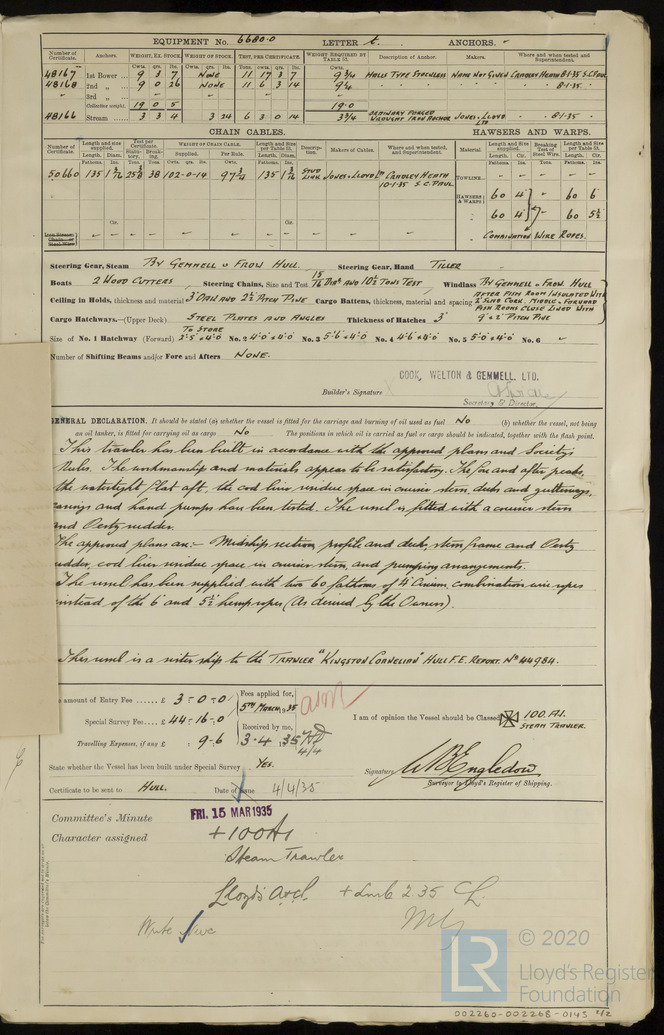 EQUIPMENT No. 6680.0 LETTER t. ANCHORS.
Number of Certificate. Anchors. WEIGHT, EX. STOCK. WEIGHT OF STOCK. TEST, PER CERTIFICATE. WEIGHT REQUIRED BY TABLE 53. Description of Anchor. Makers. Where and when tested and Superintendent.
Cwts. qrs. lbs. Cwts. qrs. lbs. Tons. cwts. qrs. lbs. Cwts.
48167 1st Bower ... 9 3 7 NONE 11 17 3 7 9 3/4 HALLS TYPE STOCKLESS NAME NOT GIVEN CRADLEY HEATH 8.1.35 S.C. PAUL
48168 2nd „ ... 9 0 26 NONE 11 6 3 14 9 1/4 8.1.35
3rd „
Collective weight. 19 0 5 19.0
48166 Stream ... 3 3 4 3 24 6 3 0 14 3 3/4 ORDINARY FORGED WROUGHT IRON ANCHOR JONES & LLOYD LTD 8.1.35
CHAIN CABLES. HAWSERS AND WARPS.
Number of Certificate. Length and size supplied. Test per Certificate. WEIGHT OF CHAIN CABLE. Length and size per Table 53. Description. Makers of Cables. Where and when tested, and Superintendent. Material Length and size supplied. Breaking Test of Steel Wire. Length and size per Table 53.
50660 135 1 3/16 38 102-0-14 97 3/4 135 1 3/16 STUD LINK JONES & LLOYD LTD CRADLEY HEATH
10.1.35 S.C. PAUL
TOWLINE
HAWSERS & WARPS 60 4" 60 6
60 4" 60 5 1/2
COMBINATION WIRE ROPES.
Steering Gear, Steam BY GEMMELL & FROW HULL. Steering Gear, Hand TILLER
Boats 2 WOOD CUTTERS Steering Chains, Size and Test 15/16 DIAR AND 10 1/2 TONS TEST Windlass BY GEMMELL & FROW HULL
Ceiling in Holds, thickness and material 3" DAW AND 2 1/2" PITCH PINE Cargo Battens, thickness, material and spacing AFTER FISH ROOM INSULATED WITH 2" SLAB CORK. MIDDLE & FORWARD FISH ROOMS CLOSE LINED WITH 9" x 2" PITCH PINE
Cargo Hatchways.—(Upper Deck) STEEL PLATES AND ANGLES Thickness of Hatches 3"
TO STORE
Size of No. 1 Hatchway (Forward) 2'.5" x 4'.0" No. 2 4'.0" x 4'.0" No. 3 5'.6" x 4'.0" No. 4 4'.6" x 4'.0" No. 5 5'.0" x 4'.0" No. 6
Number of Shifting Beams and/or Fore and Afters NONE.
COOK, WELTON & GEMMELL. LTD.
Builder's Signature
Secretary & Director.
GENERAL DECLARATION. It should be stated (a) whether the vessel is fitted for the carriage and burning of oil used as fuel No (b) whether the vessel, not being
an oil tanker, is fitted for carrying oil as cargo No The positions in which oil is carried as fuel or cargo should be indicated, together with the flash point.
This trawler has been built in accordance with the approved plans and Society's
Rules. The workmanship and materials appear to be satisfactory. The fore and after peaks,
the watertight flat aft, the cod liver residue space in cruiser stern, decks and gutterways,
casings and hand pumps have been tested. The vessel is fitted with a cruiser stern
and Oerty rudder.
The approved plans are:- Midship section, profile and deck, stern frame and Oerty
rudder, cod liver residue space in cruiser stern, and pumping arrangements.
The vessel has been supplied with two 60 fathoms of 4" circum. combination wire ropes
instead of the 6" and 5 1/2" hemp ropes (As desired by the Owners).
This vessel is a sister ship to the TRAWLER "KINGSTON CORNELIAN" HULL F.E. REPORT. No 44984.
amount of Entry Fee ..... £ 3-0-0 Fees applied for, 5TH MARCH, 1935
Special Survey Fee.... £ 44-16-0 Received by me,
Travelling Expenses, if any £ : 9-6 3.4.1935
4/4
I am of opinion the Vessel should be Classed 100.A1.
STEAM TRAWLER.
State whether the Vessel has been built under Special Survey Yes.
Signature W. B. Engledow
Surveyor to Lloyd's Register of Shipping.
Certificate to be sent to HULL. Date of Issue 4/4/35
Committee's Minute FRI. 15 MAR 1935
Character assigned +100A1
Steam Trawler
Lloyd's A&CP +LMC 2.35 CL
Write
LR © 2020
Lloyd's Register
Foundation
002260-002268-0145 2/2